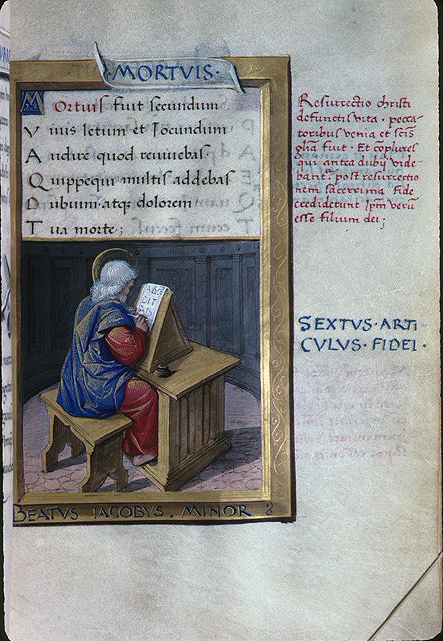 ·MORTVIS·
MOrtuis fuit secundum
Viuis letum et Iocundum
Audire quod reuiuebas·
Quippequi multis addebas
Dubium·atq; dolorem
Tua morte;
BEATVS IACOBVS·MINOR
Resurrectio christi
defunctis vita· pecca
toribus venia et scīs
gl̄ia fuit· Et cōplures
qui antea dubij vide
bant̄· post resurrectio
nem sacerrima fide
crediderunt Ipm̄ verū
esse filium dei;
SEXTVS·ARTI
CVLVS·FIDEI·